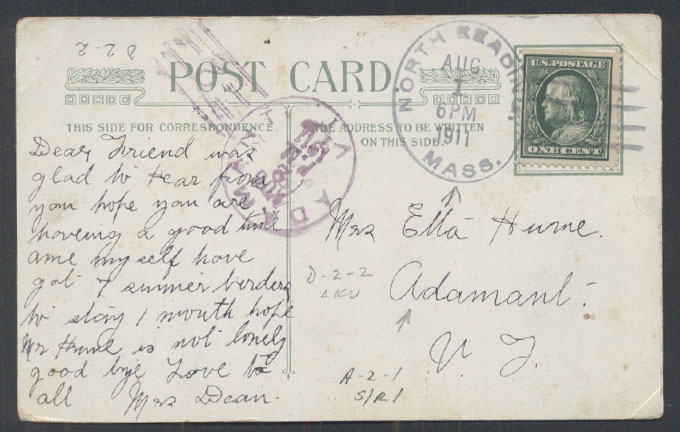 D 2-2
POST CARD
THIS SIDE FOR CORRESPONDENCE.
THE ADDRESS TO BE WRITTEN
ON THIS SIDE.
NORTH READING,
MASS.
AUG
1
6 PM
1911
U.S. POSTAGE
ONE CENT
Dear Friend was
glad to hear from
you hope you are
haveing a good time
ame my self have
got 7 summer borders
to stay 1 mouth hope
Mr Hume is not lonely
good bye Love to
all Mrs Dean.
Mrs Ella Hume.
D-2-2
LKU
Adamant.
V. T.
A-2-1
S/R 1